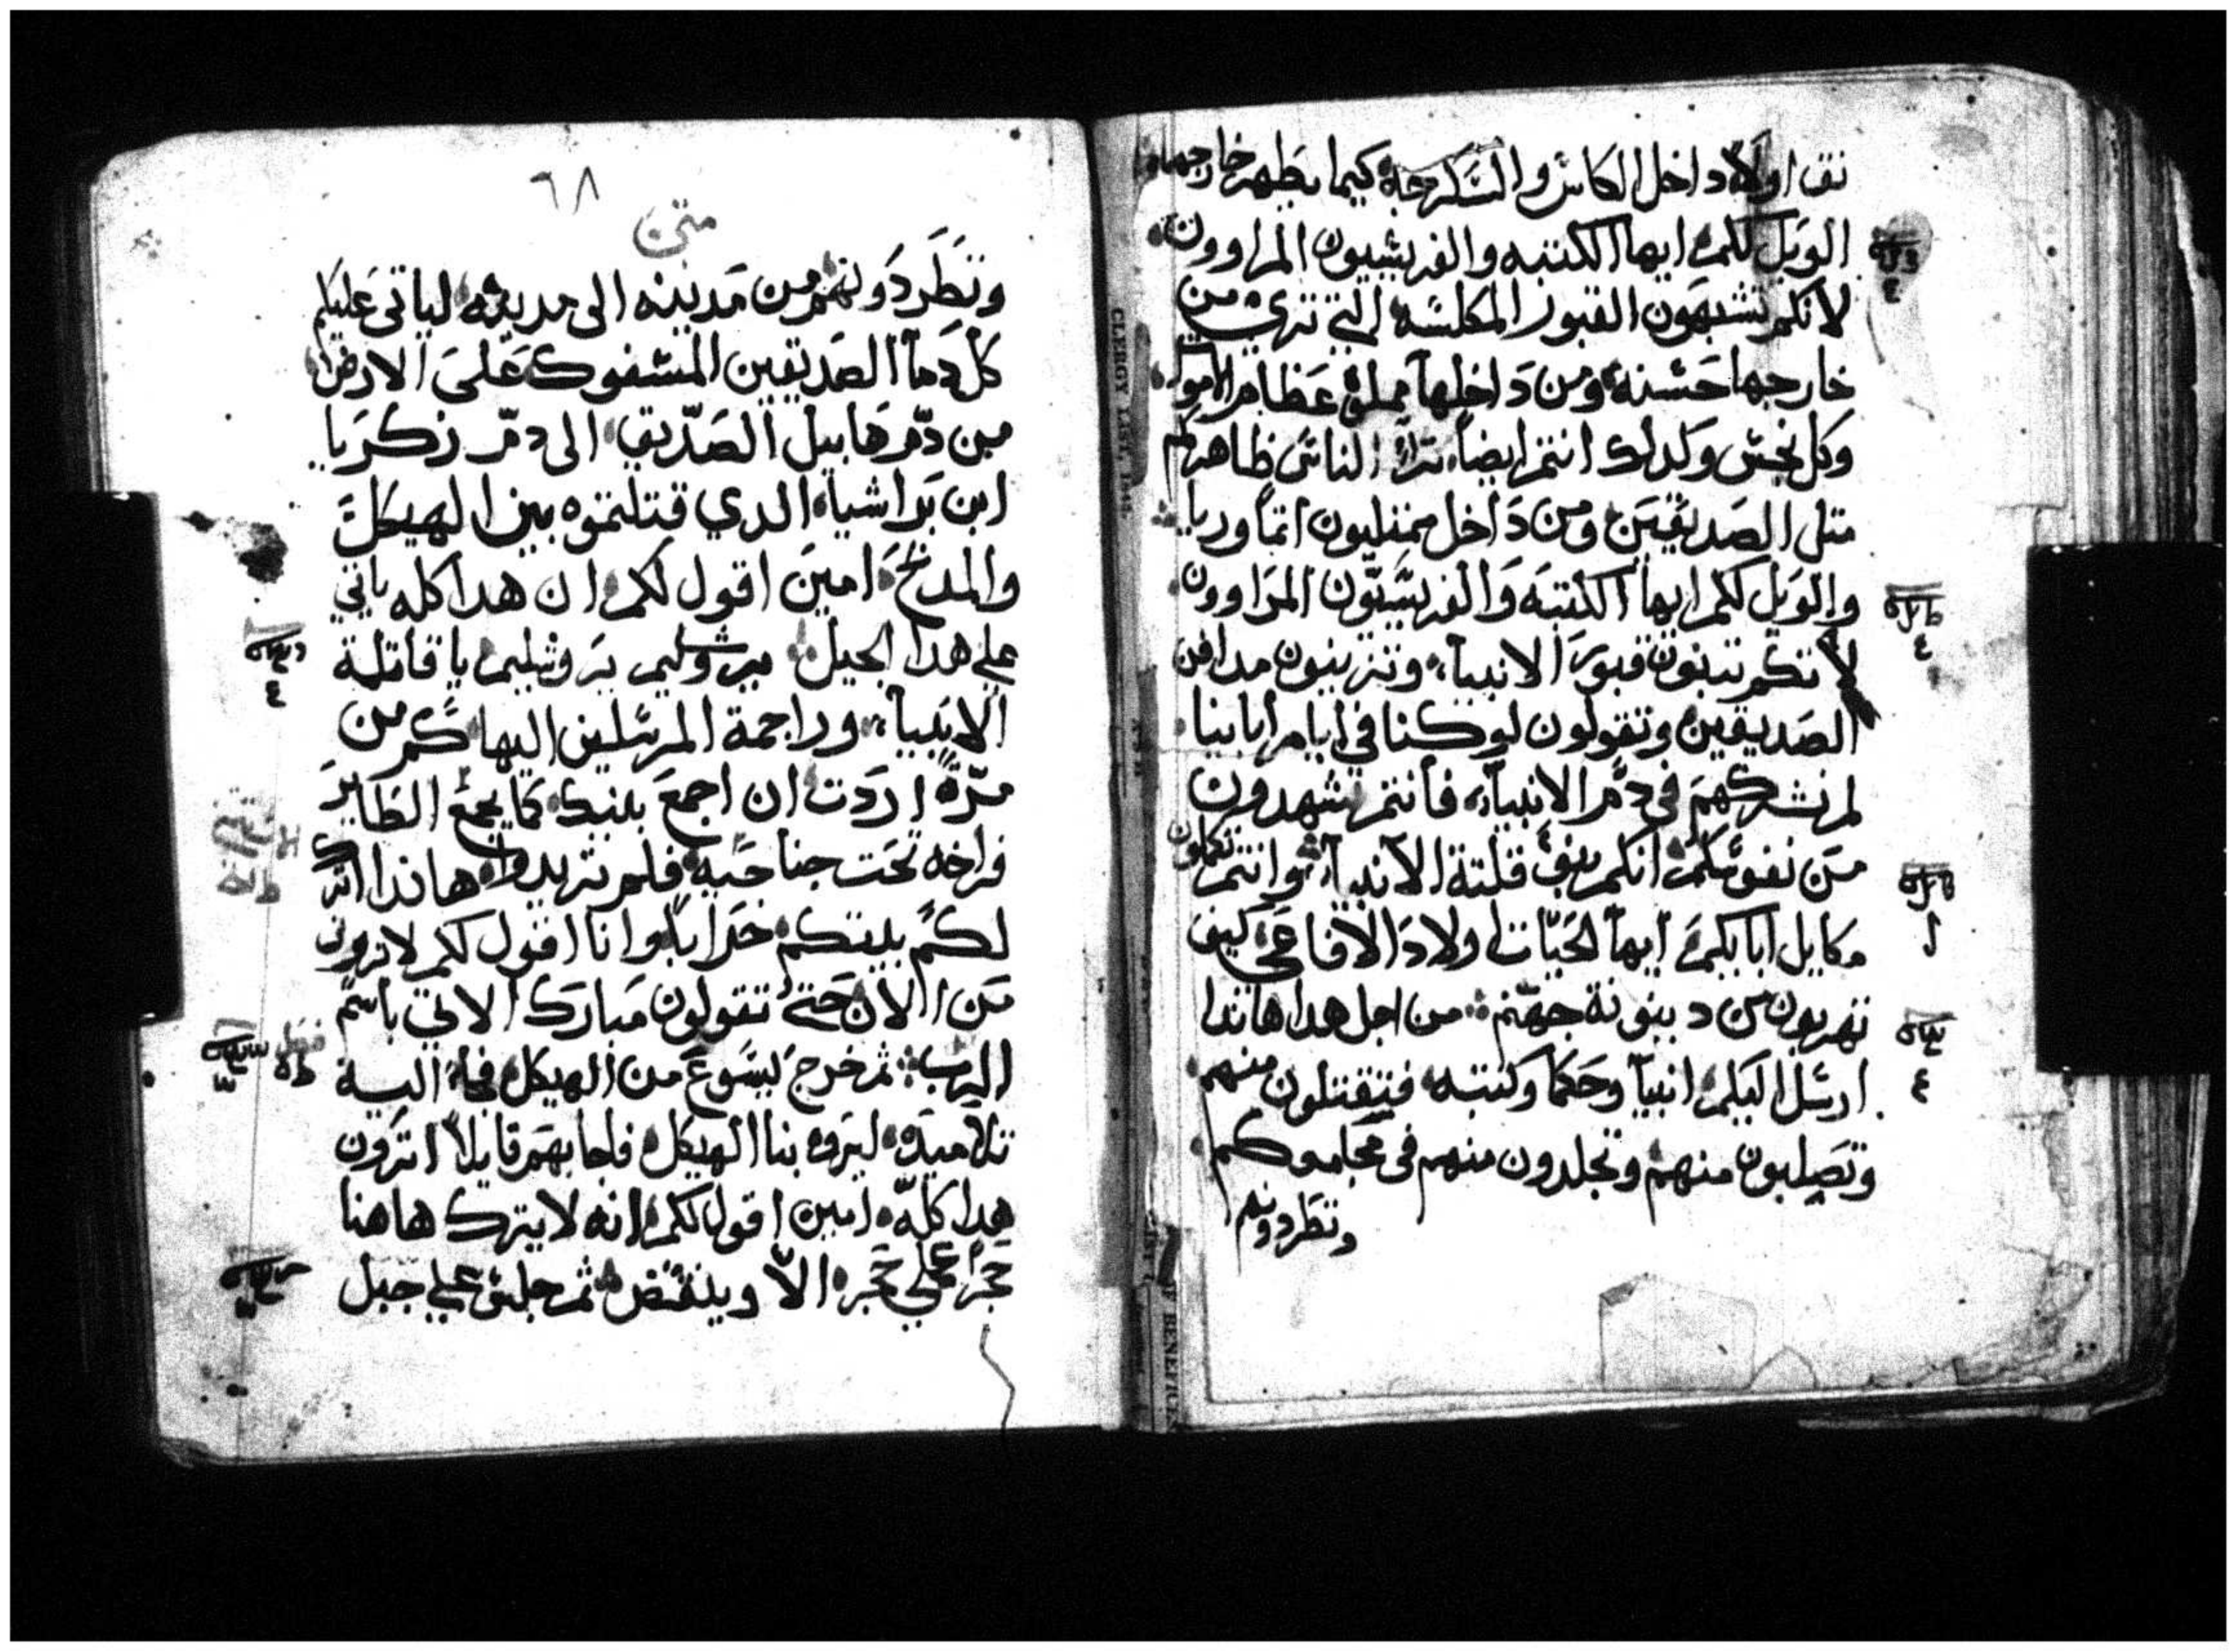 نقى اولا داخل الكاس والسكرجه كيما يطهر خارجها
الويل لكم ايها الكتبه والفريسيون المراوون
لانكم تشبهون القبور المكلسه التي ترى من
خارجها حسنه ومن داخلها مملوه عظام الاموات
وكل نجس وكدلك انتم ايضا ترا الناس ظاهركم
متل الصديقين ومن داخل ممتليون اتما وريا
والويل لكم ايها الكتبه والفريسيون المراوون
لانكم تبنون قبور الانبيا وتزينون مدافن
الصديقين وتقولون لو كنا في ايام ابابينا
لم نشركهم في دم الانبيا فانتم تشهدون
من نفوسكم انكم بني قتلة الانبيا وانتم تكملون
مكايل ابايكم ايها الحيات اولاد الافاعي كيف
تهربون من دينونة جهنم من اجل هدا هاندا
ارسل اليكم انبيا وحكما وكتبه فتقتلون منهم
وتصلبون منهم وتجلدون منهم في مجامعكم
وتطردونهم
٦٨
متى
وتطردونهم من مدينه الى مدينه لياتي عليكم
كل دما الصديقين المسفوك على الارض
من دم هابيل الصديق الى دم زكريا
ابن براشيا الدي قتلتموه بين الهيكل
والمدبح امين اقول لكم ان هدا كله ياتي
على هدا الجيل يروشليم يروشليم يا قاتلة
الانبيا وراجمة المرسلين اليها كم من
مرة اردت ان اجمع بنيك كما يجمع الطاير
فراخه تحت جناحيه فلم تريدوا هاندا اترك
لكم بيتكم خرابا وانا اقول لكم لا ترون
من الان حتى تقولون مبارك الاتي باسم
الرب ثم خرج يسوع من الهيكل فجا اليه
تلاميده ليروه بنا الهيكل فاجابهم قايلا اترون
هدا كله امين اقول لكم انه لا يترك هاهنا
حجرا على حجر الا وينقض ثم جلس على جبل